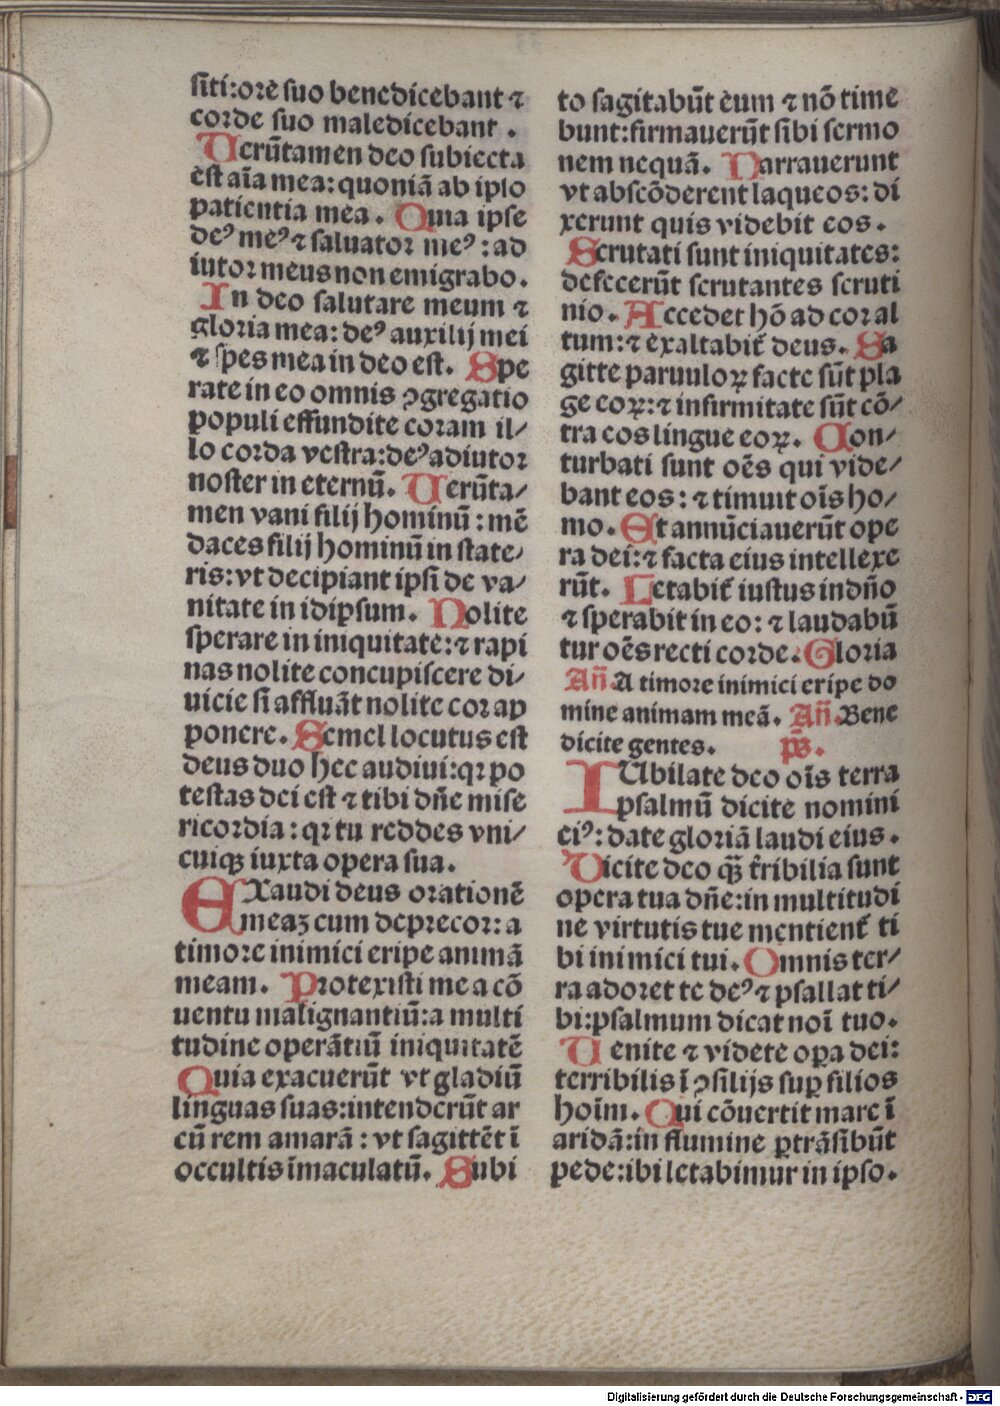 siti:ore suo benedicebant ⁊
corde suo maledicebant .
Uerũtamen deo subiecta
est aĩa mea: quoniã ab ipso
patientia mea . Quia ipse
deꝰ meꝰ ⁊ saluator meꝰ : ad
iutor meus non emigrabo.
In deo salutare meum ⁊
gloria mea: deꝰ auxilij mei
⁊ spes mea in deo est. Spe
rate in eo omnis ꝯgregatio
populi effundite coram il⸗
lo corda vestra:deꝰ adiutor
noster in eternũ. Uerũta⸗
men vani filij hominũ : mẽ
daces filij hominũ in state⸗
ris: vt decipiant ipsi de va⸗
nitate in idipsum. Nolite
sperare in iniquitate: ⁊ rapi
nas nolite concupiscere di⸗
uicie si affluãt nolite cor ap
ponere. Semel locutus est
deus duo hec audiui:qꝛ po
testas dei est ⁊ tibi dñe mise
ricordia : qꝛ tu reddes vni⸗
cuiqꝫ iuxta opera sua.
EXaudi deus orationẽ
meaꝫ cum deprecor: a
timore inimici eripe animã
meam. Protexisti me a cõ
uentu malignantiũ:a multi
tudine operãtiũ iniquitatẽ
Quia exacuerũt vt gladiũ
linguas suas:intenderũt ar
cũ rem amarã : vt sagittẽt ĩ
occultis ĩmaculatũ. Subi
to sagitabũt eum ⁊ nõ time
bunt:firmauerũt sibi sermo
nem nequã. Narrauerunt
vt abscõderent laqueos: di
xerunt quis videbit eos.
Scrutati sunt iniquitates:
defecerũt scrutantes scruti
nio. Accedet hõ ad cor al
tum: ⁊ exaltabit̃ deus. Sa
gitte paruuloꝝ facte sũt pla
ge eoꝝ: ⁊ infirmitate sũt cõ⸗
tra eos lingue eoꝝ. Con⸗
turbati sunt oẽs qui vide⸗
bant eos: ⁊ timuit oĩs ho⸗
mo. Et annũciauerũt ope
ra dei: ⁊ facta eius intellexe
rũt. Letabit̃ iustus in dño
⁊ sperabit in eo: ⁊ laudabũ
tur oẽs recti corde. Gloria
Añ. A timore inimici eripe do
mine animam meã. Añ. Bene
dicite gentes. ps̃.
IUbilate deo oĩs terra
psalmũ dicite nomini
eiꝰ: date gloriã laudi eius.
Dicite deo q̃ꝫ t̃ribilia sunt
opera tua dñe: in multitudi
ne virtutis tue mentient̃ ti
bi inimici tui. Omnis ter⸗
ra adoret te deꝰ ⁊ psallat ti⸗
bi:psalmum dicat noĩ tuo.
Uenite ⁊ videte oꝑa dei:
terribilis ĩ ꝯsilijs suꝑ filios
hoĩm. Qui cõuertit mare ĩ
aridã:in flumine ꝑtrãsibũt
pede:ibi letabimur in ipso.
Digitalisierung gefördert durch die Deutsche Forschungsgemeinschaft - DFG